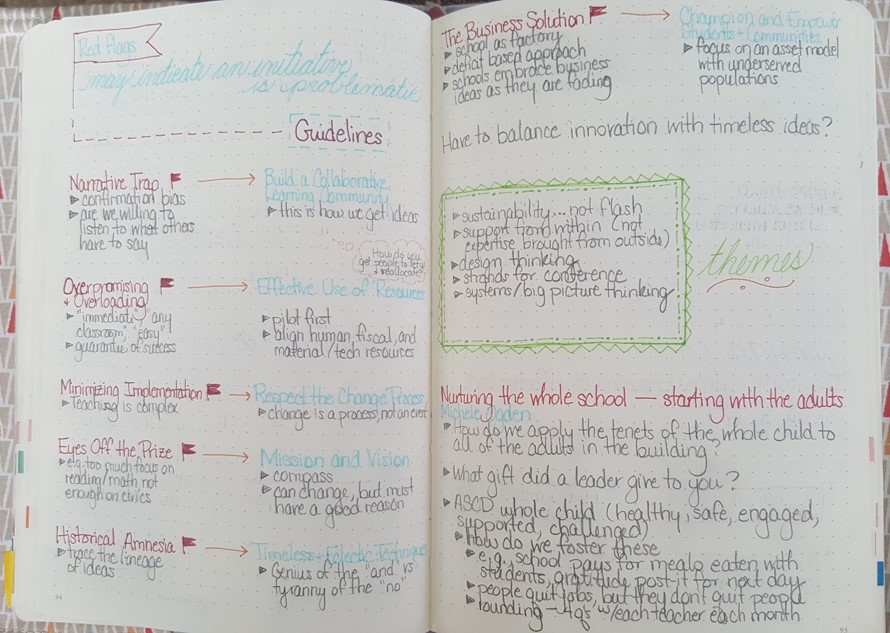 Red flags
may indicate an initiative
is problematic
Guidelines
Narrative Trap
confirmation bias
are we willing to
listen to what others
have to say
Build a Collaborative
Learning Community
this is how we get ideas
How do you
get people to
+ reallocate?
Overpromising
+ Overloading
"immediate" any
classroom, "easy"
guarantee of success
Effective Use of Resources
pilot first
align human, fiscal, and
material/tech resources
Minimizing Implementation
Teaching is complex
Respect the Change Process
change is a process, not an event
Eyes Off the Prize
e.g. too much focus on
reading/math not
enough on civics
Mission and Vision
compass
can change, but must
have a good reason
Historical Amnesia
trace the lineage
of ideas
Timeless + Eclectic Technique
Genius of the "and" vs
tyranny of the "no"
94
The Business Solution
school as factory
deficit based approach
schools embrace business
ideas as they are fading
Champion and Empower
Students + Communities
focus on an asset model
with underserved
populations
Have to balance innovation with timeless ideas?
sustainability...not flash
support from within (not
expertise brought from outside)
design thinking
strands for conference
systems/big picture thinking
themes
Nurturing the whole school — starting with the adults
Michele Ogden
How do we apply the tenets of the whole child to
all of the adults in the building?
What gift did a leader give to you?
ASCD whole child (healthy, safe, engaged,
supported, challenged)
How do we foster these
e.g., school pays for meals eaten with
students, gratitude post-it for next day
people quit jobs, but they don't quit people
rounding - 4 q's w/each teacher each month
95